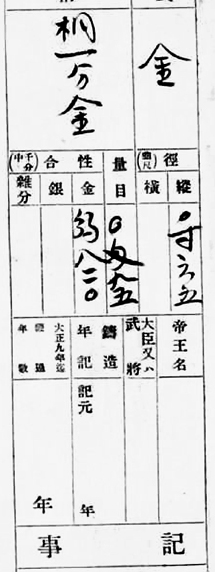 金
桐一分金
徑(曲尺)
縱
〇寸六五
橫
量目
〇匁九五
性合(千分中)
金
弱八二〇
銀
雜分
帝王名
大臣又ハ武將
鑄造
年記
記元
年
大正九年迄
年數
年
記事